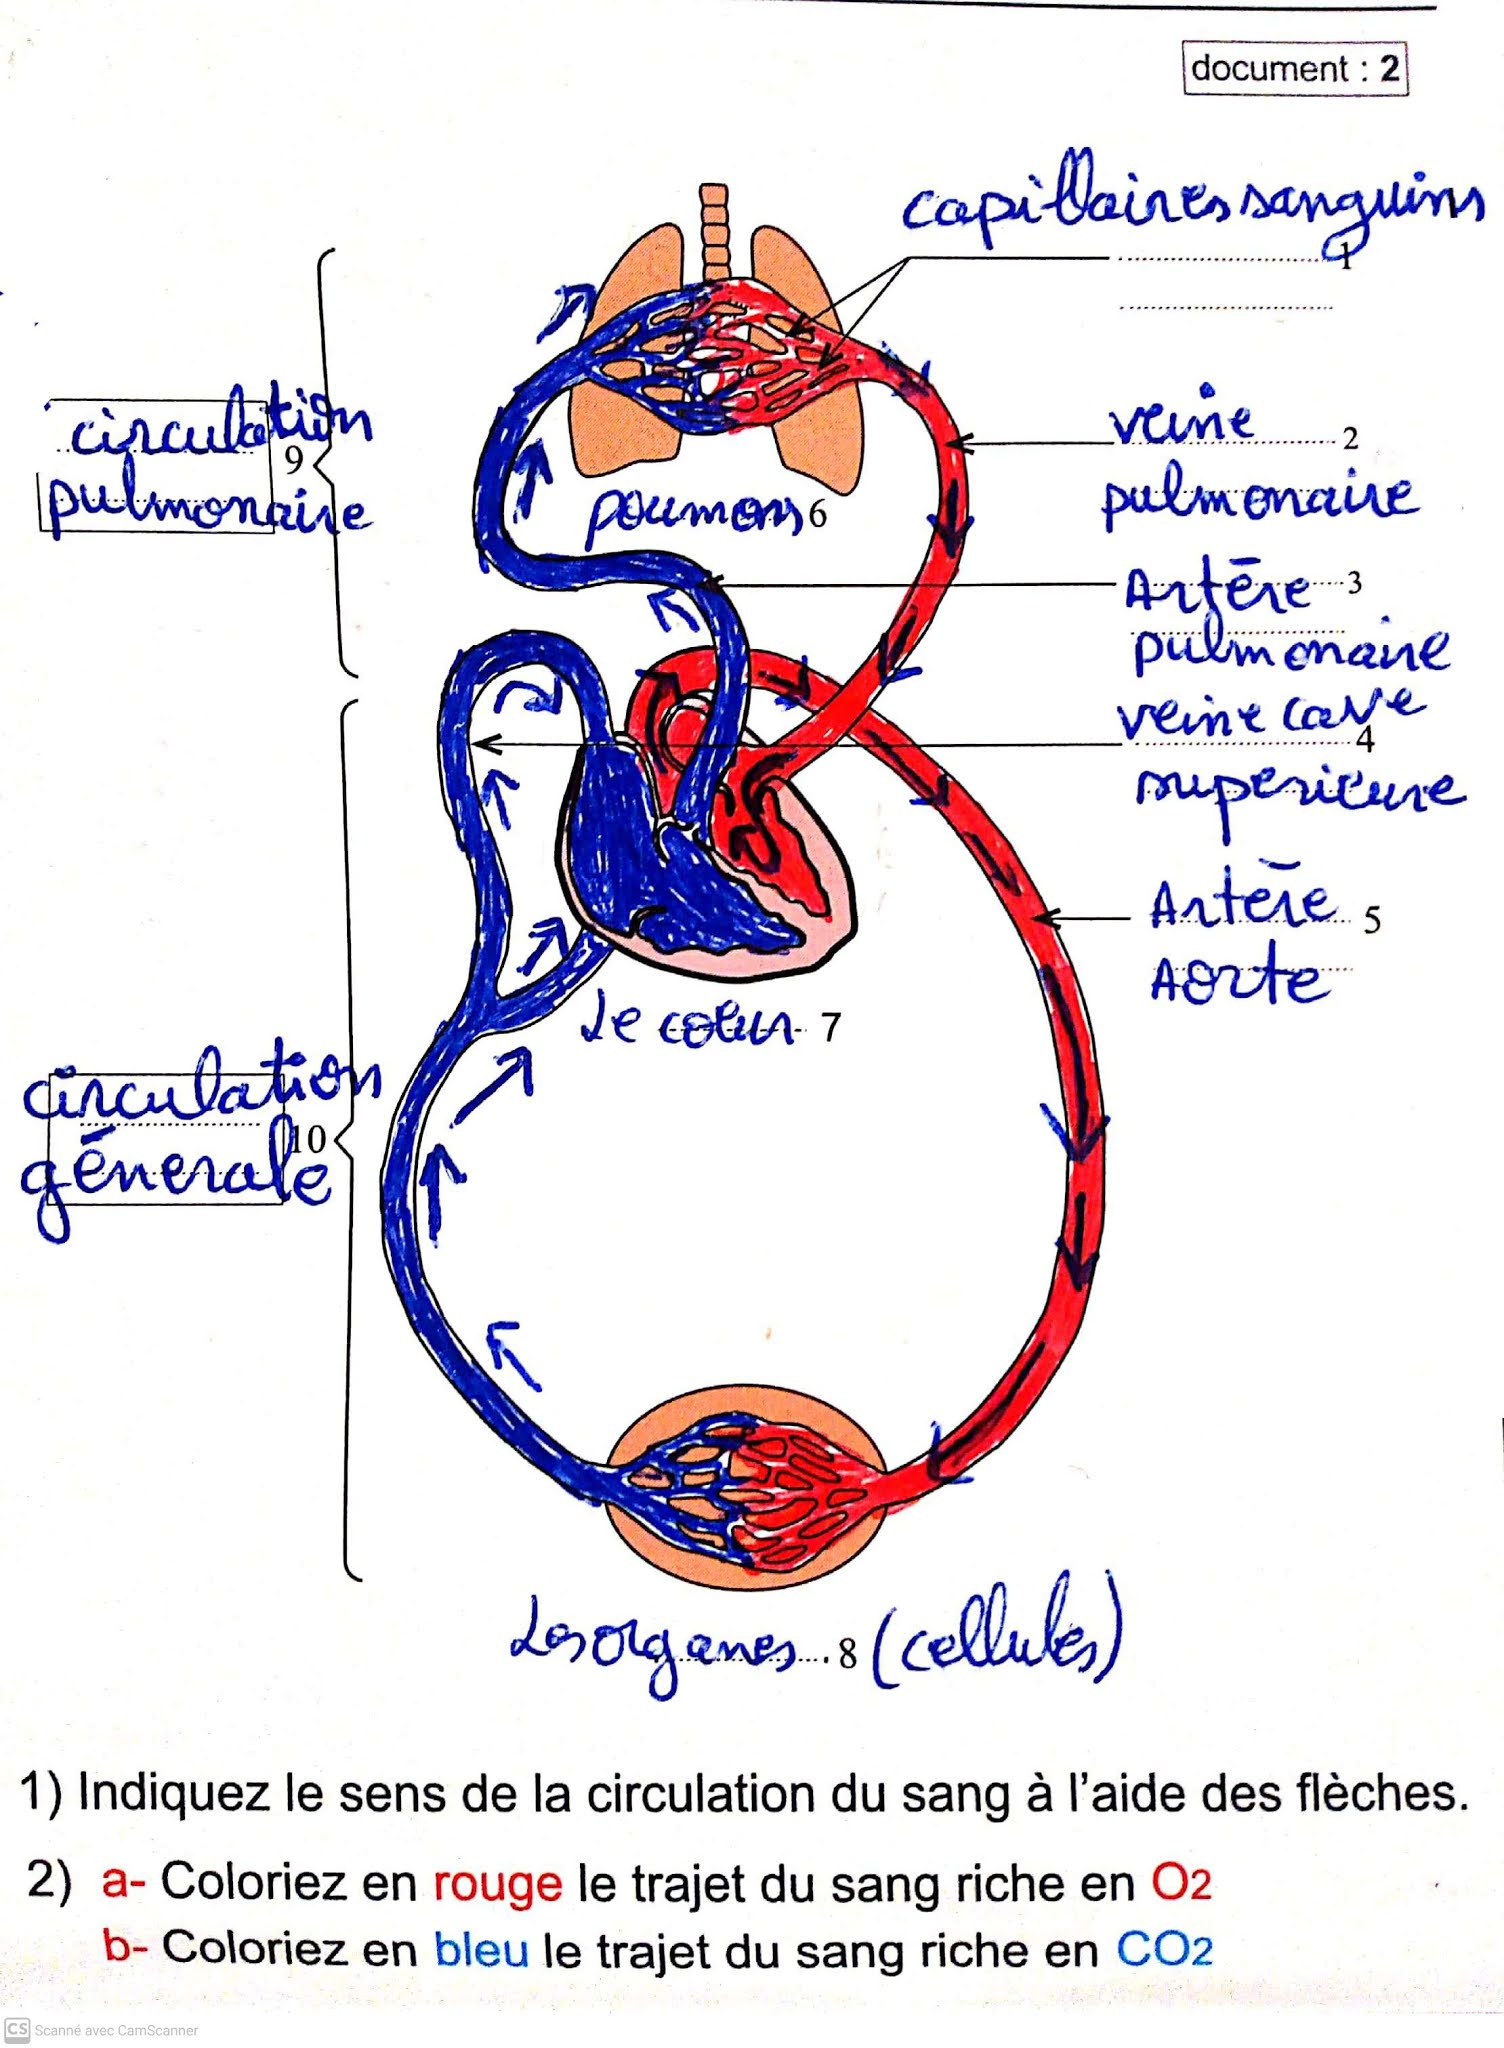 document : 2
capillaires sanguins
1
veine 2
pulmonaire
circulation
9
pulmonaire
poumons 6
Artēre 3
pulmonaire
veine cave
4
superieure
Artēre 5
Aorte
Le coeur 7
circulation
10
gēnerale
Les organes 8 (cellules)
1) Indiquez le sens de la circulation du sang à l'aide des flèches.
2) a- Coloriez en rouge le trajet du sang riche en O2
b- Coloriez en bleu le trajet du sang riche en CO2
CS Scanné avec CamScanner